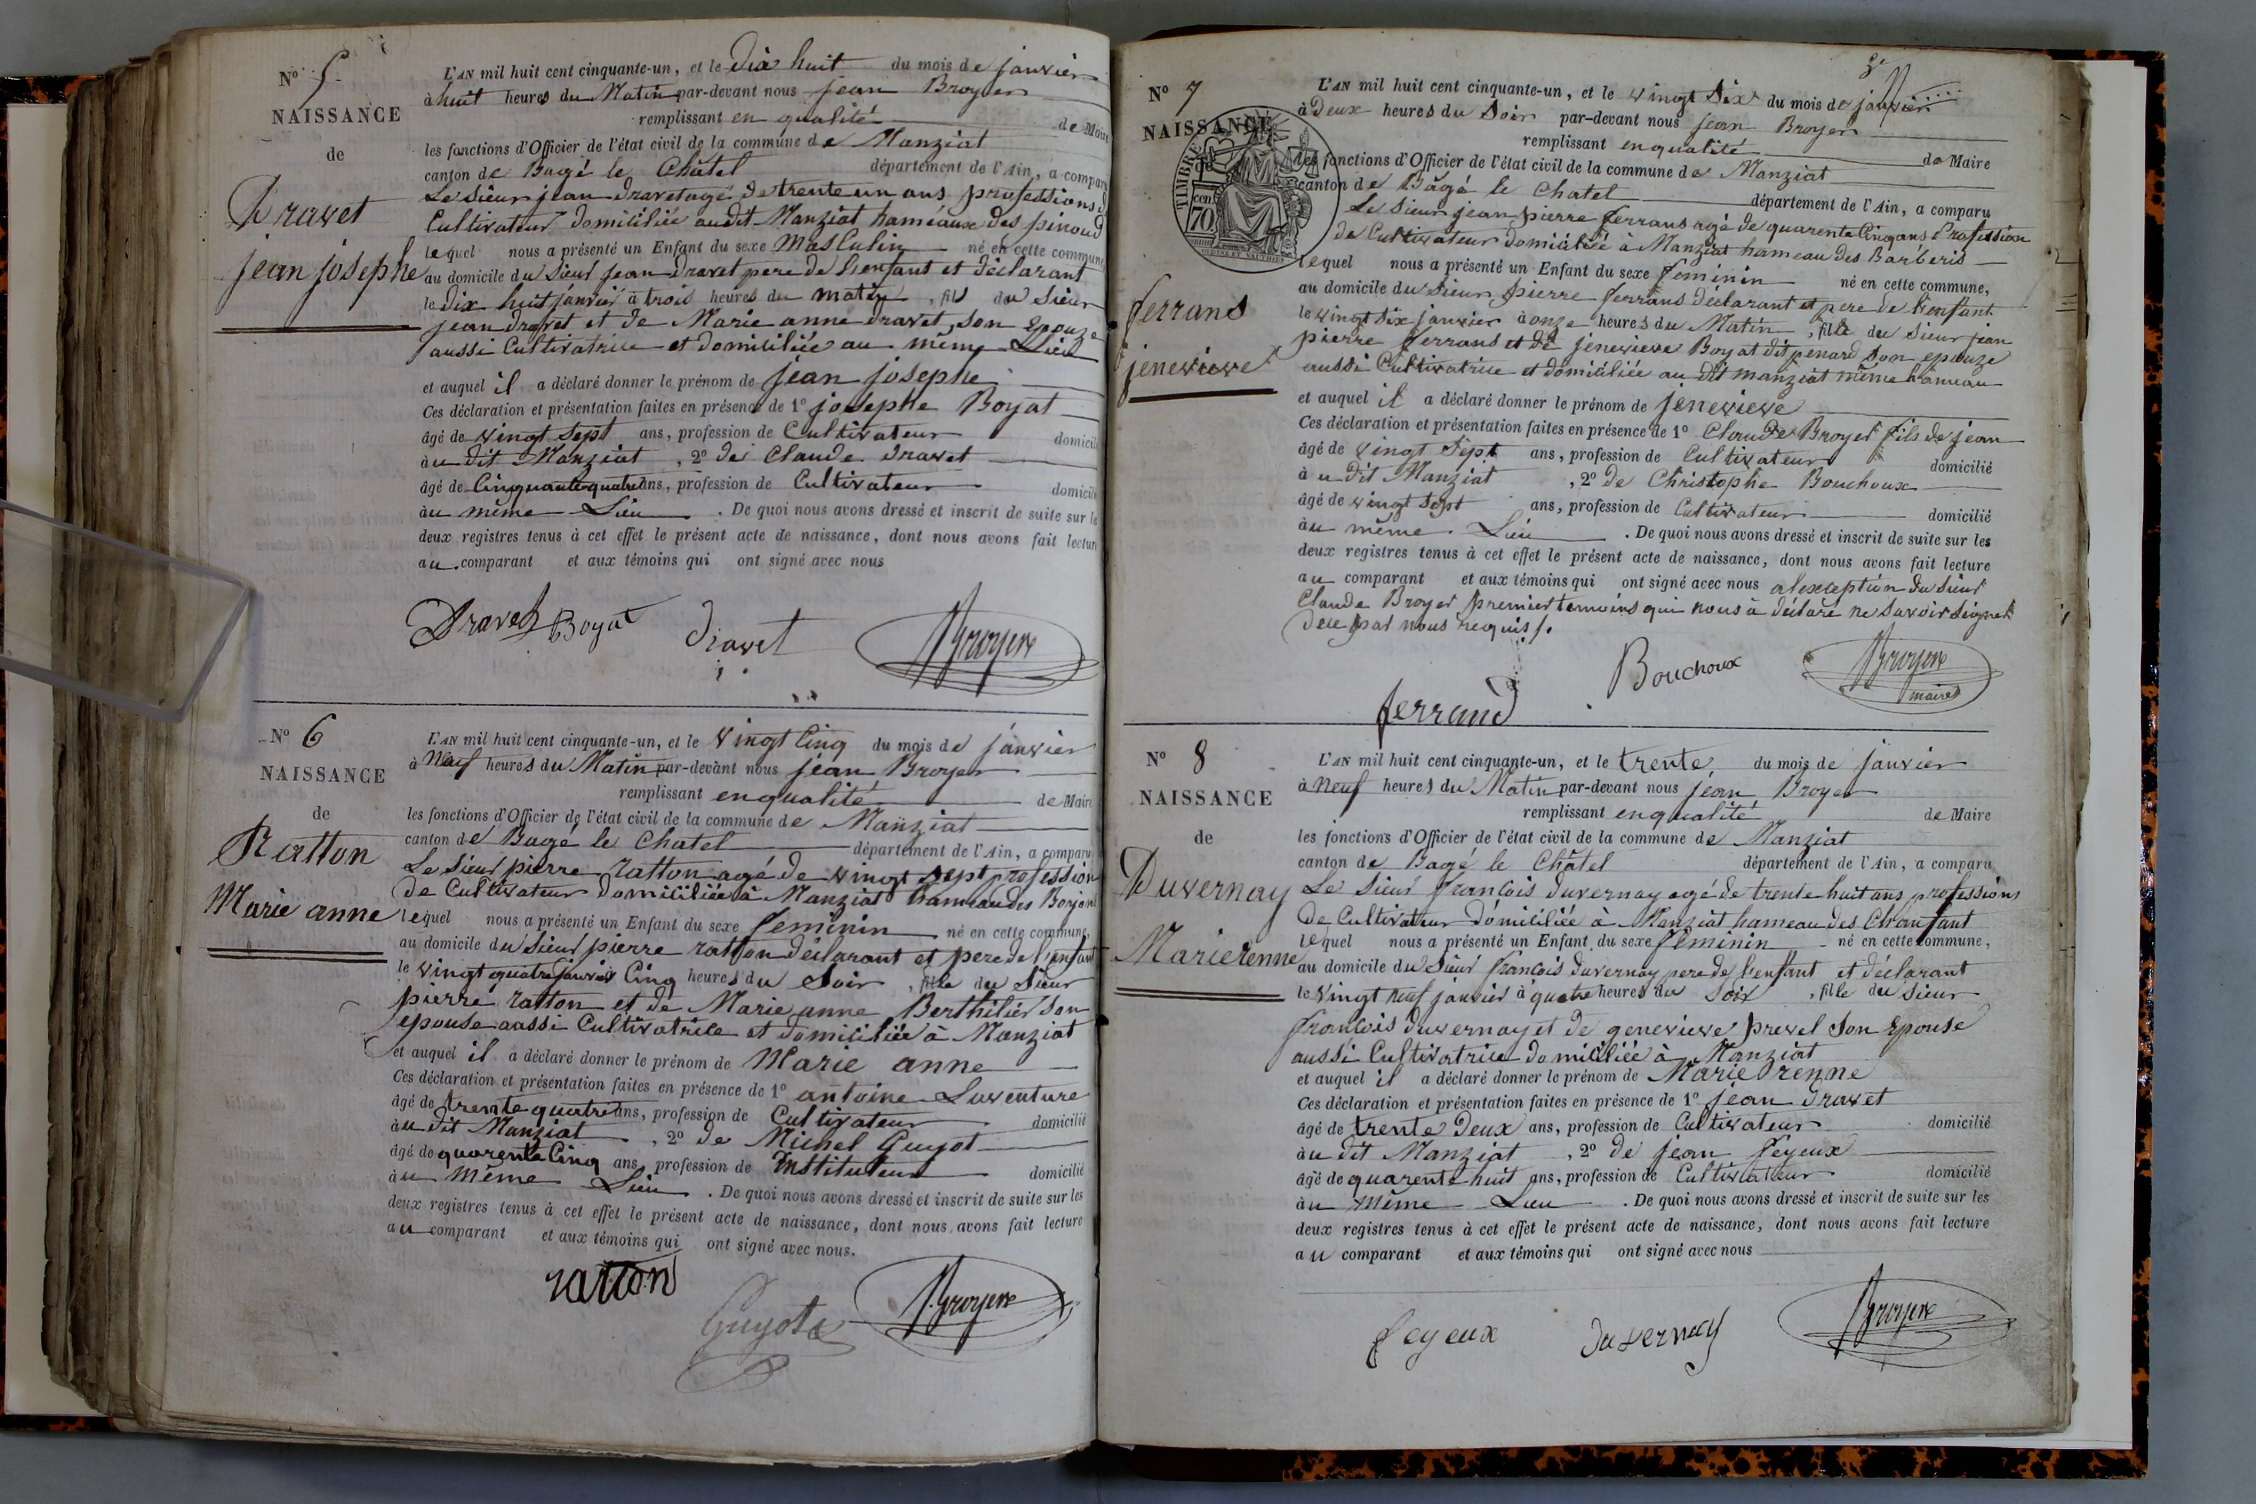 N° 5
NAISSANCE
de
Dravet
jean josephe
L'AN mil huit cent cinquante-un, et le Dix huit du mois de janvier
à huit heures du Matin par-devant nous jean Broyer
remplissant en qualité de Maire
les fonctions d'Officier de l'état civil de la commune de Manziat
canton de Bagé le Châtel département de l'Ain, a comparu
Le Sieur jean dravet agé de trente un ans professions de
Cultivateur domiciliée audit Manziat hameaux des pinoud
lequel nous a présenté un Enfant du sexe Masculin né en cette commune
au domicile du Sieur jean dravet pere de l'enfant et déclarant
le dix huit janvier à trois heures du matin, fils du Sieur
jean dravet et de Marie anne dravet, son Epouze
aussi Cultivatrice et domiciliée au même Lieu
et auquel il a déclaré donner le prénom de jean josephe
Ces déclaration et présentation faites en présence de 1° josephe Boyat
âgé de vingt sept ans, profession de Cultivateur domicilié
au dit Manziat, 2° de Claude dravet
âgé de Cinquante quatre ans, profession de Cultivateur domicilié
au même Lieu. De quoi nous avons dressé et inscrit de suite sur les
deux registres tenus à cet effet le présent acte de naissance, dont nous avons fait lecture
au comparant et aux témoins qui ont signé avec nous
Dravet Boyat dravet Broyer
N° 6
NAISSANCE
de
Ratton
Marie anne
L'AN mil huit cent cinquante-un, et le vingt Cinq du mois de janvier
à Neuf heures du Matin par-devant nous jean Broyer
remplissant en qualité de Maire
les fonctions d'Officier de l'état civil de la commune de Manziat
canton de Bagé le Chatel département de l'Ain, a comparu
Le Sieur pierre ratton agé de vingt sept profession
de Cultivateur domiciliée à Manziat hameau des Borjon
lequel nous a présenté un Enfant du sexe feminin né en cette commune,
au domicile du Sieur pierre ratton déclarant et pere de l'enfant
le vingt quatre janvier Cinq heures du Soir, fille du Sieur
pierre ratton et de Marie anne Berthilier son
epouse aussi Cultivatrice et domiciliée à Manziat
et auquel il a déclaré donner le prénom de Marie anne
Ces déclaration et présentation faites en présence de 1° antoine Laventure
âgé de trente quatre ans, profession de Cultivateur domicilié
au dit Manziat, 2° de Michel Guyot
âgé de quarente Cinq ans, profession de Instituteur domicilié
au même Lieu. De quoi nous avons dressé et inscrit de suite sur les
deux registres tenus à cet effet le présent acte de naissance, dont nous avons fait lecture
au comparant et aux témoins qui ont signé avec nous.
ratton Guyot Broyer
3e
N° 7
NAISSANCE
de
TIMBRE
70
ferrand
jenevieve
L'AN mil huit cent cinquante-un, et le vingt Six du mois de janvier
à Deux heures du Soir par-devant nous jean Broyer
remplissant en qualité de Maire
les fonctions d'Officier de l'état civil de la commune de Manziat
canton de Bâgé le chatel département de l'Ain, a comparu
Le Sieur jean pierre ferrans agé de quarente Cinq ans Profession
de Cultivateur domiciliée à Manziat hameau des Barberis
lequel nous a présenté un Enfant du sexe féminin né en cette commune,
au domicile du Sieur pierre ferrans declarant et pere de l'enfant
le vingt Six janvier à onze heures du Matin, fille du Sieur jean
pierre ferrans et de jenevieve Boyat dit penard Son epouze
aussi Cultivatrice et domiciliée au dit manziat même hameau
et auquel il a déclaré donner le prénom de jenevieve
Ces déclaration et présentation faites en présence de 1° Claude Broyer fils de jean
âgé de vingt Sept ans, profession de Cultivateur domicilié
au Dit Manziat, 2° de Christophe Bouchoux
âgé de vingt sept ans, profession de Cultivateur domicilié
au même Lieu. De quoi nous avons dressé et inscrit de suite sur les
deux registres tenus à cet effet le présent acte de naissance, dont nous avons fait lecture
au comparant et aux témoins qui ont signé avec nous alexception du sieur
Claude Broyer premier temoins qui nous à déclare ne Savoir Signer
Dece par nous requis /.
ferrand Bouchoux Broyer
maire
N° 8
NAISSANCE
de
Duvernay
Marie renne
L'AN mil huit cent cinquante-un, et le trente du mois de janvier
à Neuf heures du Matin par-devant nous jean Broyer
remplissant en qualité de Maire
les fonctions d'Officier de l'état civil de la commune de Manziat
canton de Bagé le Châtel département de l'Ain, a comparu
Le Sieur françois duvernay agé de trente huit ans professions
De Cultivateur domiciliée à Manziat hameau des Chanfant
lequel nous a présenté un Enfant du sexe féminin né en cette commune,
au domicile du Sieur françois duvernay pere de l'enfant et déclarant
le vingt neuf janvier à quatre heures du Soir, fille du Sieur
françois duvernay et de genevieve prevel Son Epouse
aussi Cultivatrice domiciliée à Manziat
et auquel il a déclaré donner le prénom de Marie renne
Ces déclaration et présentation faites en présence de 1° jean dravet
âgé de trente Deux ans, profession de Cultivateur domicilié
au dit Manziat, 2° de jean feyeux
âgé de quarente huit ans, profession de Cultivateur domicilié
au même Lieu. De quoi nous avons dressé et inscrit de suite sur les
deux registres tenus à cet effet le présent acte de naissance, dont nous avons fait lecture
au comparant et aux témoins qui ont signé avec nous
feyeux duvernay Broyer